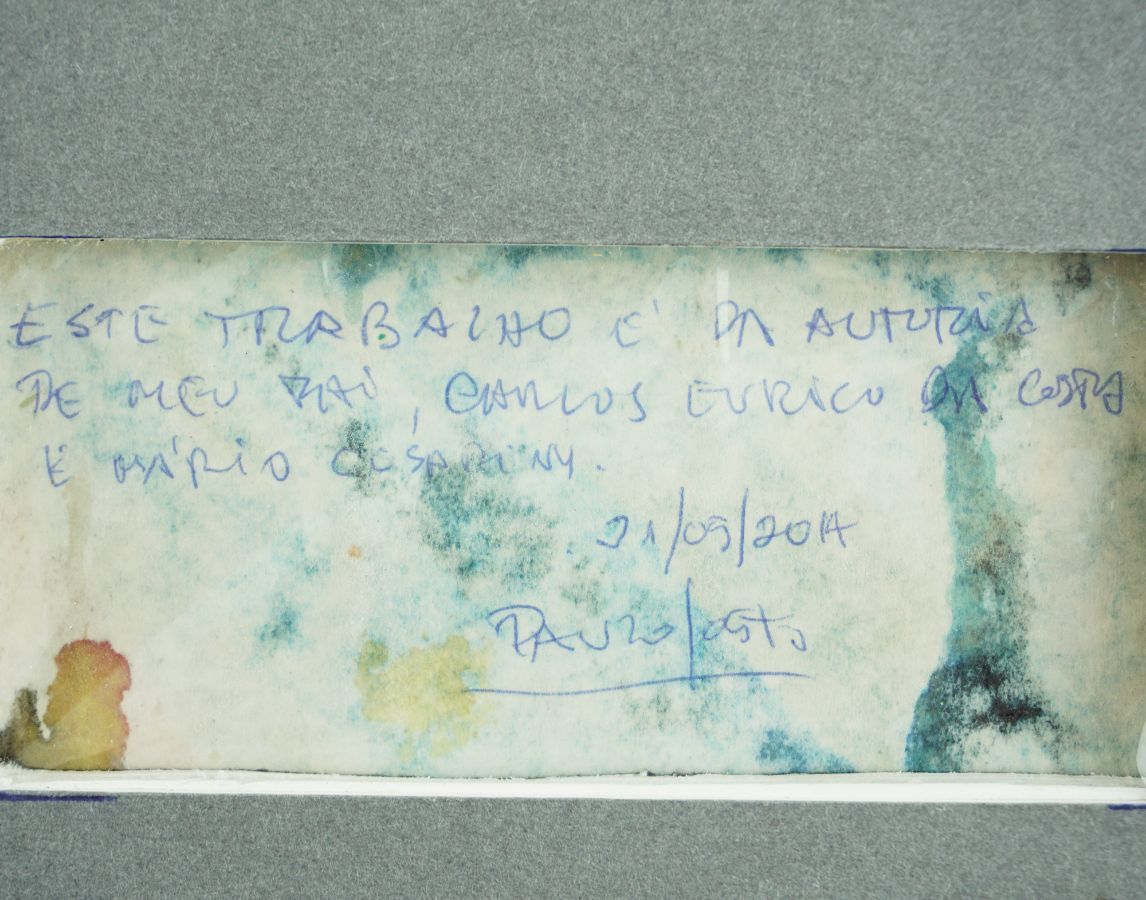 ESTE TRABALHO E' DA AUTORIA
DE MEU PAI, CARLOS EURICO DA COSTA
E MÁRIO CESARINY.
21/09/2014
PAULO COSTA